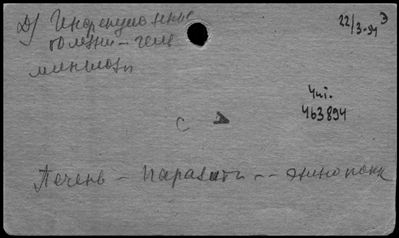 Д) Инфекционные
болезни - гель
минтозы
22/3-94 Э
Чит.
463894
С
Печень - Паразиты -- эхинококк